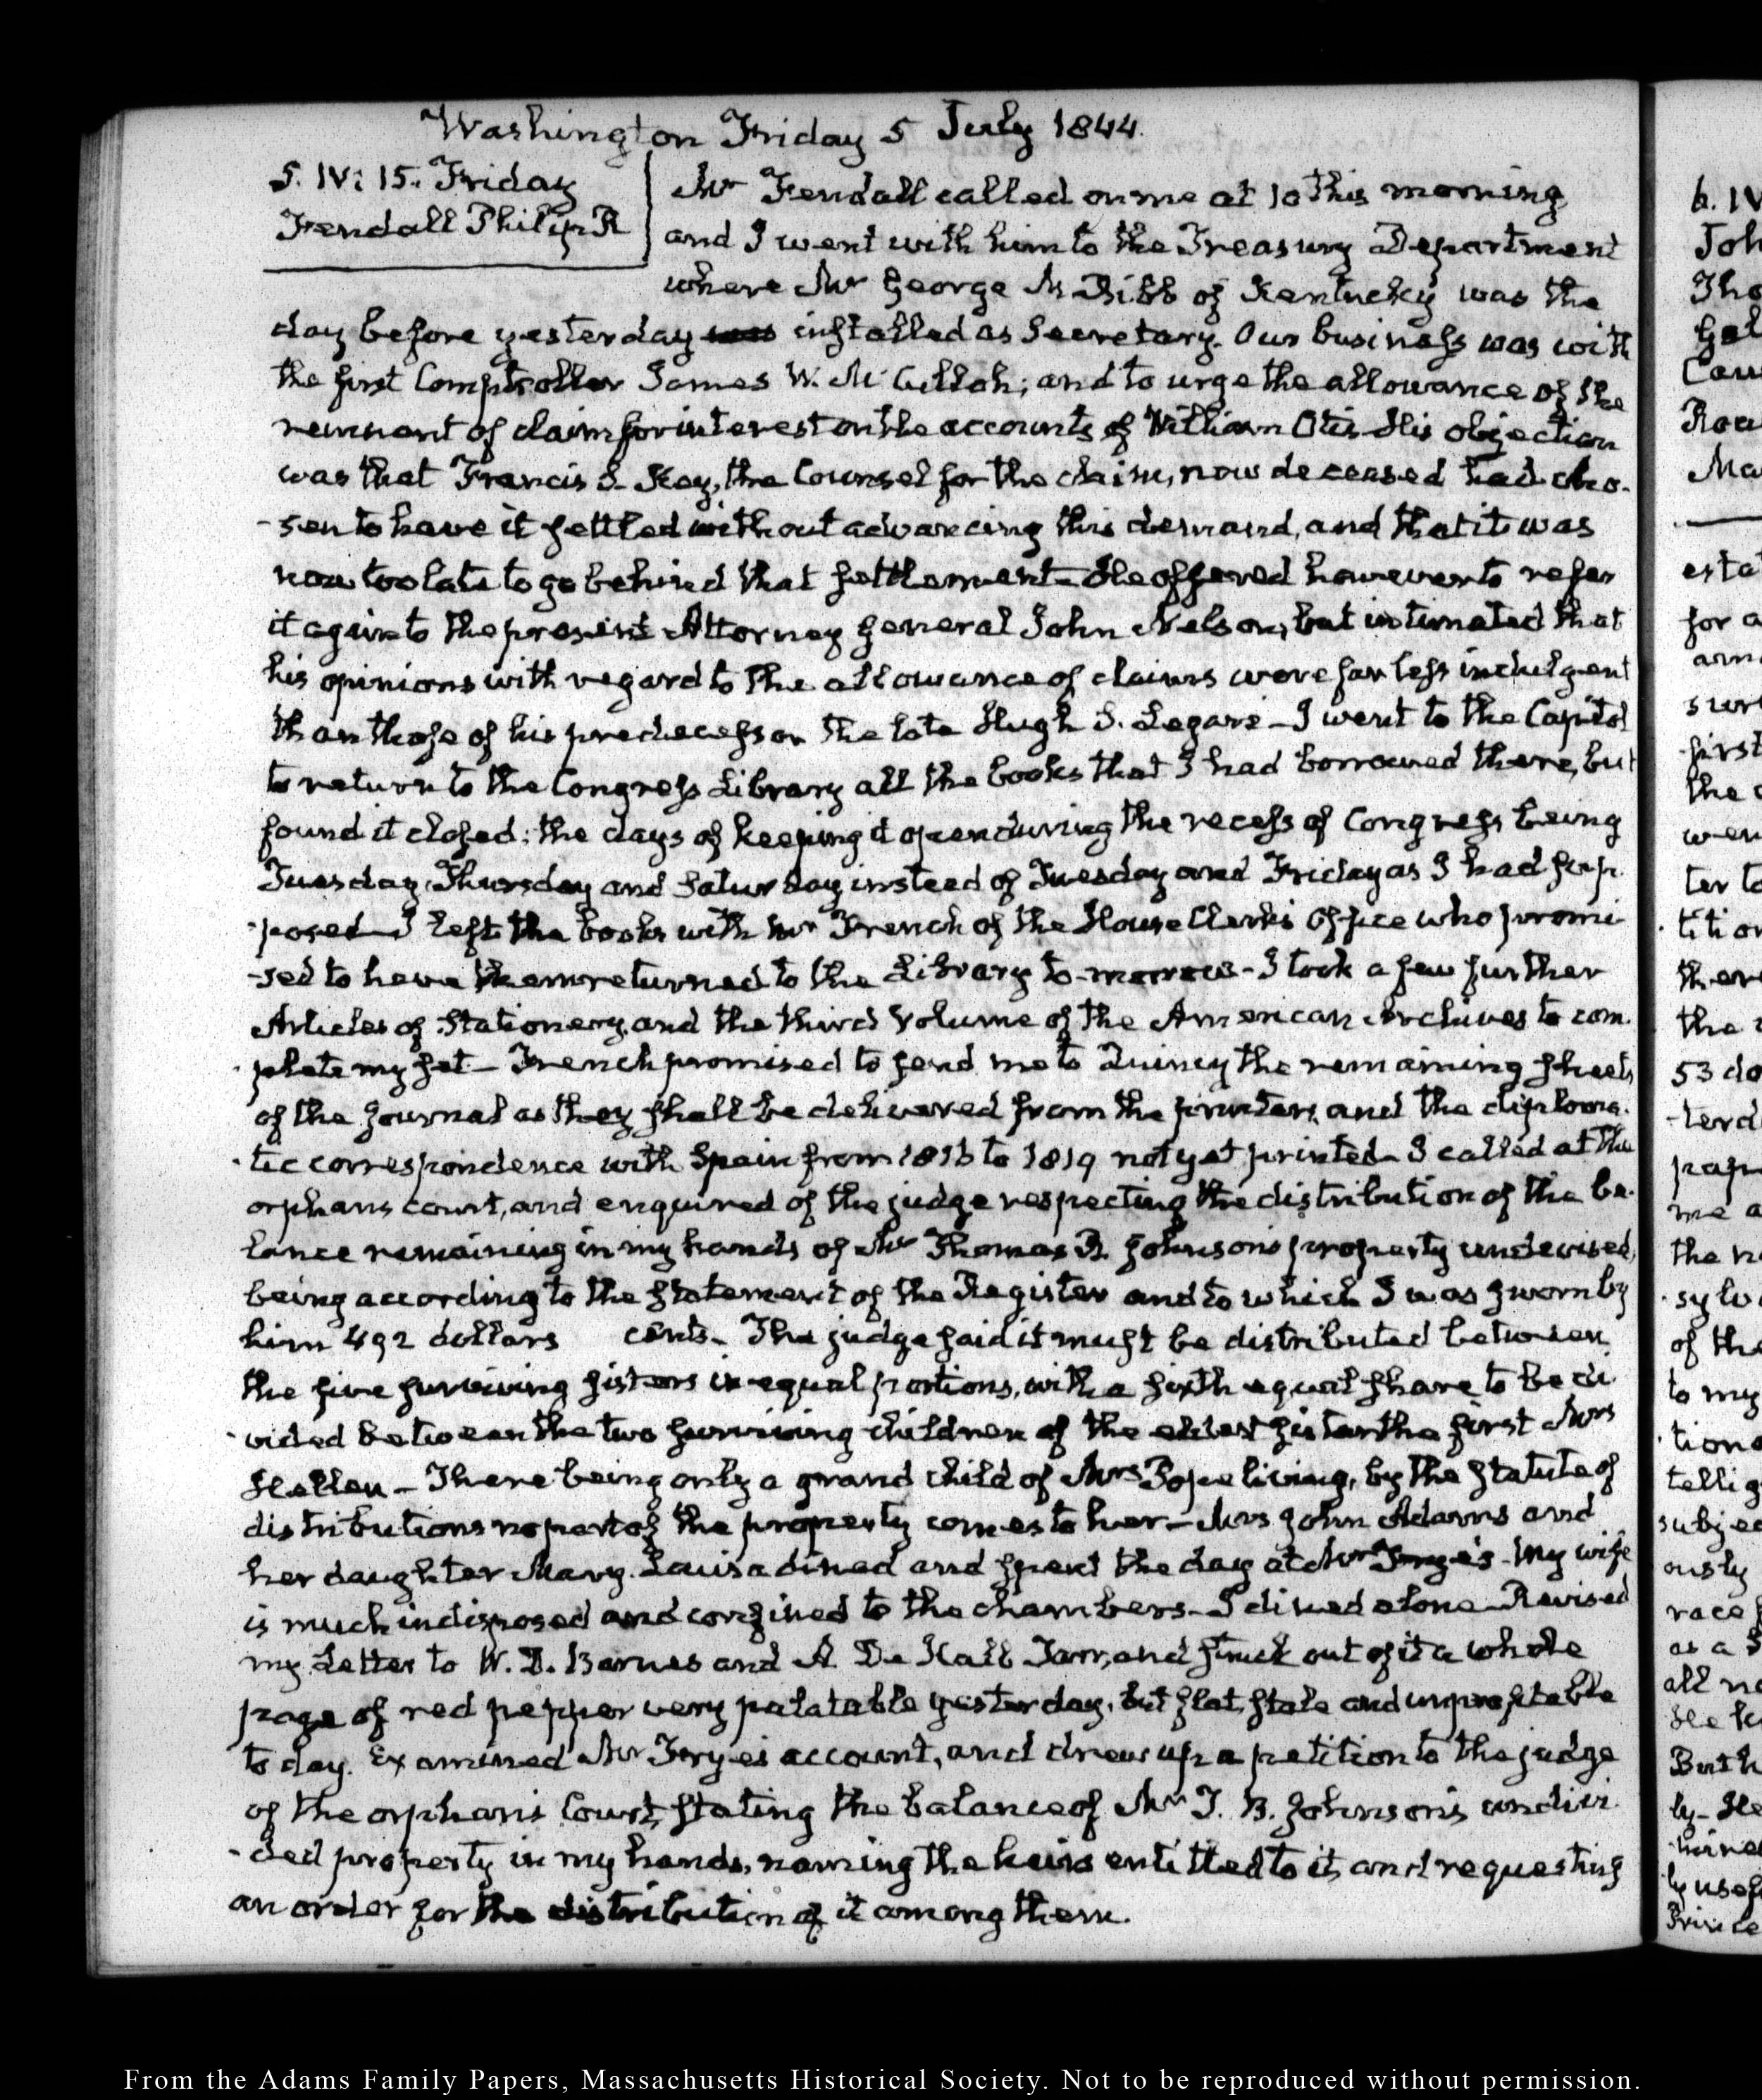 Washington Friday 5 July 1844.
5. IV: 15. Friday
Fendall Philip R
Mr Fendall called on me at 10 this morning
and I went with him to the Treasury Department
where Mr George M Bibb of Kentucky was the
day before yesterday was installed as Secretary. Our business was with
the first Comptroller James W. McCulloh; and to urge the allowance of the
remnant of claim for interest on the accounts of William Otis. His objection
was that Francis S. Key, the Counsel for the claim, now deceased had cho-
-sen to have it settled without advancing this demand, and that it was
now too late to go behind that settlement - He offered however to refer
it again to the present Attorney General John Nelson, but intimated that
his opinions with regard to the allowance of claims were far less indulgent
than those of his predecessor the late Hugh S. Legaré - I went to the Capitol
to return to the Congress Library all the books that I had borrowed there, but
found it closed: the days of keeping it open during the recess of Congress being
Tuesday, Thursday and Saturday instead of Tuesday and Friday as I had sup-
-posed - I left the books with Mr French of the House Clerk's Office who promi-
-sed to have them returned to the Library to-morrow - I took a few further
Articles of Stationery, and the third Volume of the American Archives to com-
-plete my set - French promised to send me to Quincy the remaining sheets
of the Journal as they shall be delivered from the printers, and the diploma-
-tic correspondence with Spain from 1816 to 1819 not yet printed - I called at the
orphans court, and enquired of the judge respecting the distribution of the ba-
lance remaining in my hands of Mr Thomas B. Johnson's property undevised,
being according to the statement of the Register and to which I was sworn by
him 492 dollars cents - The judge said it must be distributed between
the five surviving sisters in equal portions, with a sixth equal share to be di-
-vided between the two surviving children of the eldest sister the first Mrs
Hellen - There being only a grand child of Mrs Pope living, by the Statute of
distributions no part of the property comes to her - Mrs John Adams and
her daughter Mary Louisa dined and spent the day at Mr Frye's - My wife
is much indisposed and confined to the chambers - I dined alone - Revised
my Letter to W. D. Barnes and A De Kalb Tarr, and struck out of it a whole
page of red pepper very palatable yesterday, but flat, stale and unprofitable
to day. Examined Mr Frye's account, and drew up a petition to the judge
of the orphan's Court, stating the balance of Mr T. B. Johnson's undivi-
-ded property in my hands, naming the heirs entitled to it, and requesting
an order for the distribution of it among them.
6. IV
Joh
Tho
Gal
Cau
Roa
Ma
esta
for a
arm
sur
first
the c
wer
ter to
tition
ther
the
53 do
-terd
pap
me a
the n
sylv
of the
to my
tion
tellig
subje
ously
race
as a
all no
He
But h
ly - He
ly use
From the Adams Family Papers, Massachusetts Historical Society. Not to be reproduced without permission.